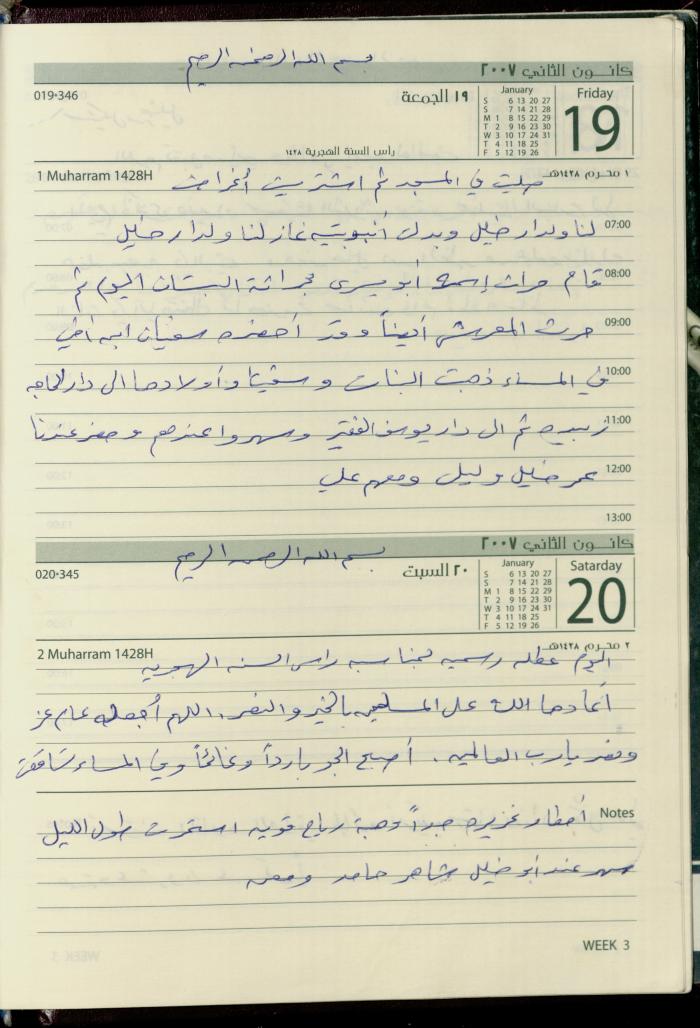 بسم الله الرحمن الرحيم
كانون الثاني ٢٠٠٧
019•346
١٩ الجمعة
January
S 6 13 20 27
S 7 14 21 28
M 1 8 15 22 29
T 2 9 16 23 30
W 3 10 17 24 31
T 4 11 18 25
F 5 12 19 26
Friday
19
رأس السنة الهجرية ١٤٢٨
1 Muharram 1428H
١ محرم ١٤٢٨هـ
صليت في المسجد ثم اشتريت أغراض
07:00 لنا ولدار خليل وبدلت أنبوبتيه غاز لنا ولدار خليل
08:00 قام حراث إسمه أبو يسرى بحراثة البستان اليوم ثم
09:00 حرث المعرش أيضاً وقد أحضره سفيان ابن أخي
10:00 في المساء ذهبت البنات وأولادها الى دار الحاجه
11:00 زبيده ثم الى دار يوسف الفقير وسهروا عندهم وحضر عندنا
12:00 عمر خليل وليلى ومعهم علي
13:00
كانون الثاني ٢٠٠٧
بسم الله الرحمن الرحيم
020•345
٢٠ السبت
January
S 6 13 20 27
S 7 14 21 28
M 1 8 15 22 29
T 2 9 16 23 30
W 3 10 17 24 31
T 4 11 18 25
F 5 12 19 26
Satarday
20
2 Muharram 1428H
٢ محرم ١٤٢٨هـ
اليوم عطله رسميه بمناسبه راس السنه الهجريه
أعادها الله على المسلمين بالخير والنصر، اللهم أجعله عام عز
ونصر يارب العالمين. أصبح الجو بارداً وغائماً وفي المساء تساقطت
Notes أمطار غزيره جداً وهبة رياح قويه استمرت طول الليل
سهر عند أبو خليل شاهر حامد
WEEK 3